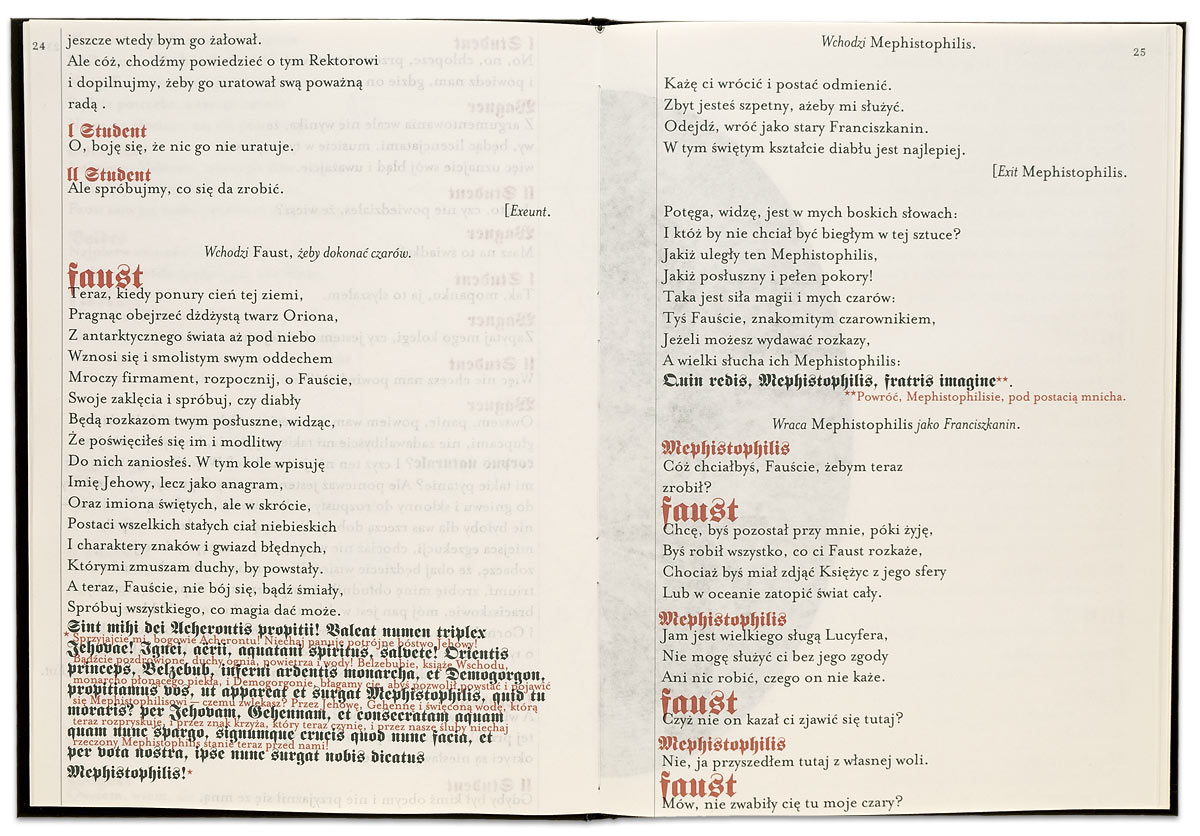 24
jeszcze wtedy bym go żałował.
Ale cóż, chodźmy powiedzieć o tym Rektorowi
i dopilnujmy, żeby go uratował swą poważną
radą .
I Student
O, boję się, że nic go nie uratuje.
II Student
Ale spróbujmy, co się da zrobić.
[Exeunt.
Wchodzi Faust, żeby dokonać czarów.
faust
Teraz, kiedy ponury cień tej ziemi,
Pragnąc obejrzeć dżdżystą twarz Oriona,
Z antarktycznego świata aż pod niebo
Wznosi się i smolistym swym oddechem
Mroczy firmament, rozpocznij, o Fauście,
Swoje zaklęcia i spróbuj, czy diabły
Będą rozkazom twym posłuszne, widząc,
Że poświęciłeś się im i modlitwy
Do nich zaniosłeś. W tym kole wpisuję
Imię Jehowy, lecz jako anagram,
Oraz imiona świętych, ale w skrócie,
Postaci wszelkich stałych ciał niebieskich
I charaktery znaków i gwiazd błędnych,
Którymi zmuszam duchy, by powstały.
A teraz, Fauście, nie bój się, bądź śmiały,
Spróbuj wszystkiego, co magia dać może.
Sint mihi dei Acherontis propitii! Valeat numen triplex
*Sprzyjajcie mi, bogowie Acherontu! Niechaj panuje potrójne bóstwo Jehowy!
Jehovae! Ignei, aërii, aquatani spiritus, salvete! Orientis
Bądźcie pozdrowione, duchy ognia, powietrza i wody! Belzebubie, książę Wschodu,
princeps, Belzebub, inferni ardentis monarcha, et Demogorgon,
monarcho płonącego piekła, i Demogorgonie, błagamy cię, abyś pozwolił powstać i pojawić
propitiamus vos, ut appareat et surgat Mephistophilis, quid tu
się Mephistophilisowi – czemu zwlekasz? Przez Jehowę, Gehennę i święconą wodę, którą
moraris? per Jehovam, Gehennam, et consecratam aquam
teraz rozpryskuję, i przez znak krzyża, który teraz czynię, i przez nasze śluby niechaj
quam nunc spargo, signumque crucis quod nunc facia, et
rzeczony Mephistophilis stanie teraz przed nami!
per vota nostra, ipse nunc surgat nobis dicatus
Mephistophilis!*
25
Wchodzi Mephistophilis.
Każę ci wrócić i postać odmienić.
Zbyt jesteś szpetny, ażeby mi służyć.
Odejdź, wróć jako stary Franciszkanin.
W tym świętym kształcie diabłu jest najlepiej.
[Exit Mephistophilis.
Potęga, widzę, jest w mych boskich słowach:
I któż by nie chciał być biegłym w tej sztuce?
Jakiż uległy ten Mephistophilis,
Jakiż posłuszny i pełen pokory!
Taka jest siła magii i mych czarów:
Tyś Fauście, znakomitym czarownikiem,
Jeżeli możesz wydawać rozkazy,
A wielki słucha ich Mephistophilis:
Quin redis, Mephistophilis, fratris imagine**.
**Powróć, Mephistophilisie, pod postacią mnicha.
Wraca Mephistophilis jako Franciszkanin.
Mephistophilis
Cóż chciałbyś, Fauście, żebym teraz
zrobił?
faust
Chcę, byś pozostał przy mnie, póki żyję,
Byś robił wszystko, co ci Faust rozkaże,
Chociaż byś miał zdjąć Księżyc z jego sfery
Lub w oceanie zatopić świat cały.
Mephistophilis
Jam jest wielkiego sługą Lucyfera,
Nie mogę służyć ci bez jego zgody
Ani nic robić, czego on nie każe.
faust
Czyż nie on kazał ci zjawić się tutaj?
Mephistophilis
Nie, ja przyszedłem tutaj z własnej woli.
faust
Mów, nie zwabiły cię tu moje czary?